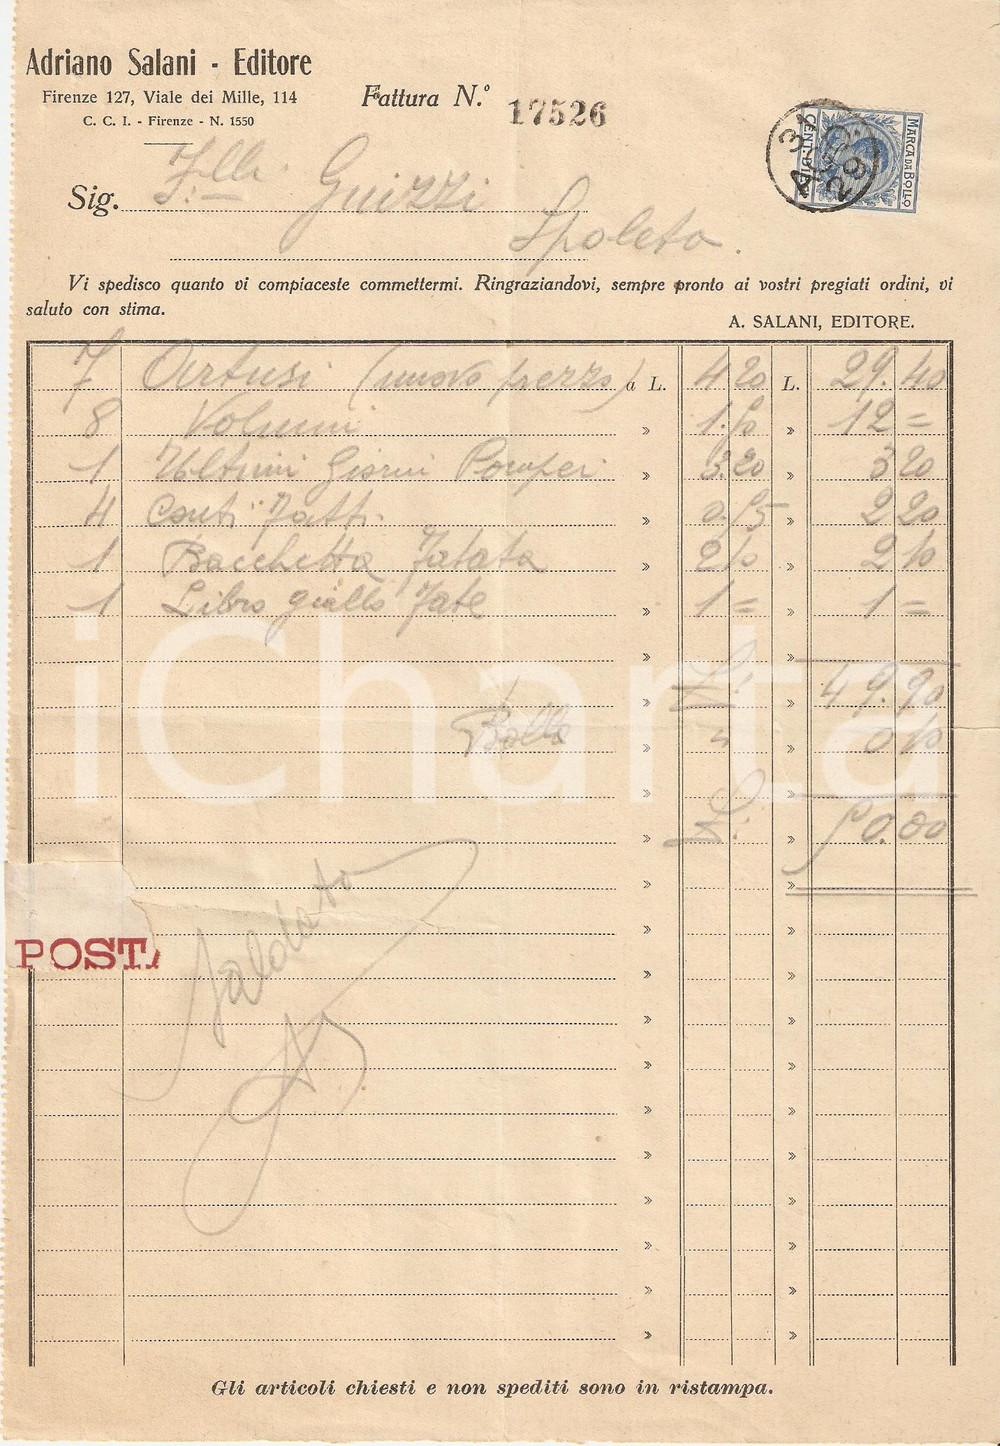 Adriano Salani - Editore
Firenze 127, Viale dei Mille, 114
C. C. I. - Firenze - N. 1550
Fattura N.º 17526
MARCA DA BOLLO
Sig. F.lli Guizzi
Spoleto.
Vi spedisco quanto vi compiaceste commettermi. Ringraziandovi, sempre pronto ai vostri pregiati ordini, vi
saluto con stima.
A. SALANI, EDITORE.
7 Artusi (nuovo prezzo) a L. 4 20 L. 29. 40
8 Volumi » 1.50 » 12 =
1 Ultimi Giorni Pompei » 3.20 » 3 20
4 Conti Fatti » 0.55 » 2 20
1 Bacchetta Fatata » 2 10 » 2 10
1 Libro giallo Fate » 1 = » 1 =
» L. » 49.90
Bollo » " » 0 10
» L. » 50.00
Saldato
POSTA
iCharta
Gli articoli chiesti e non spediti sono in ristampa.